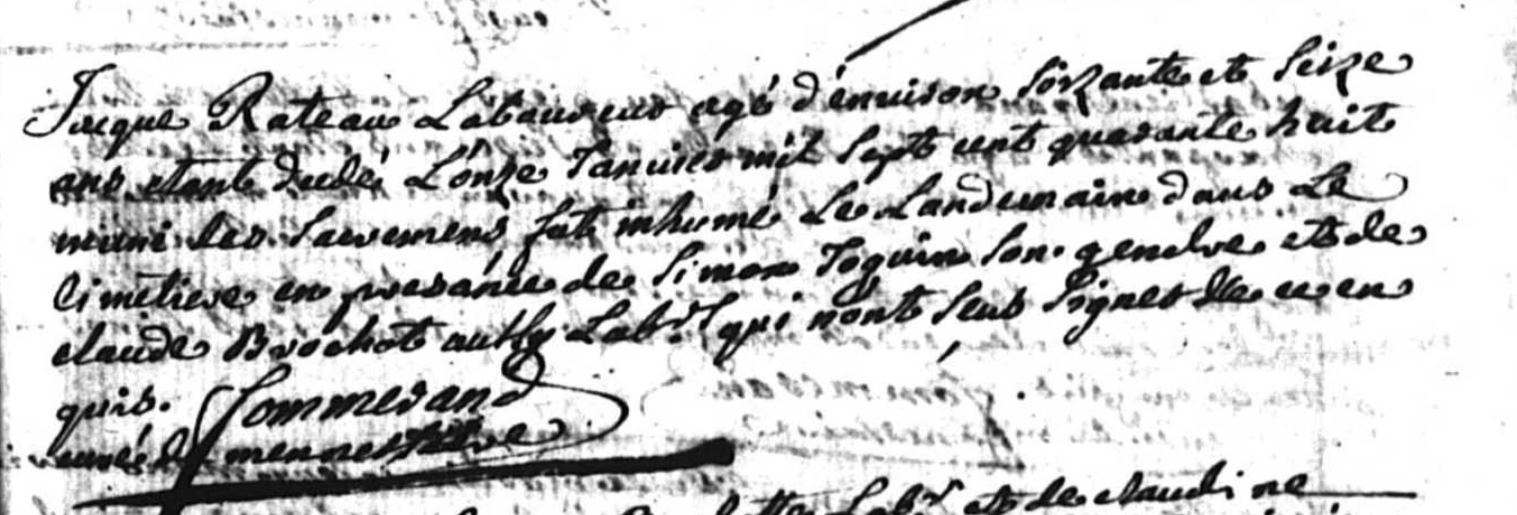 Jacque Rateau Laboureur agé d'environ soixante et seize
ans etant decedé L'onze Janvier mil sept cent quarante huit
muni des sacremens fut inhumé Le Landemain dans Le
Cimetiere en presance de Simon Joguin son gendre et de
claude Brochot aussy Lab.r qui nont seus signer de ce en
quis. Commerand
curé de mennestreve
Lab.r et de claudine